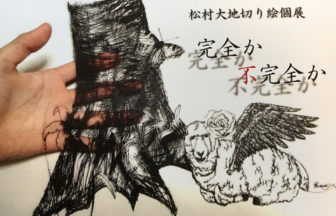 松村大地切り絵個展
完全か
不完全か